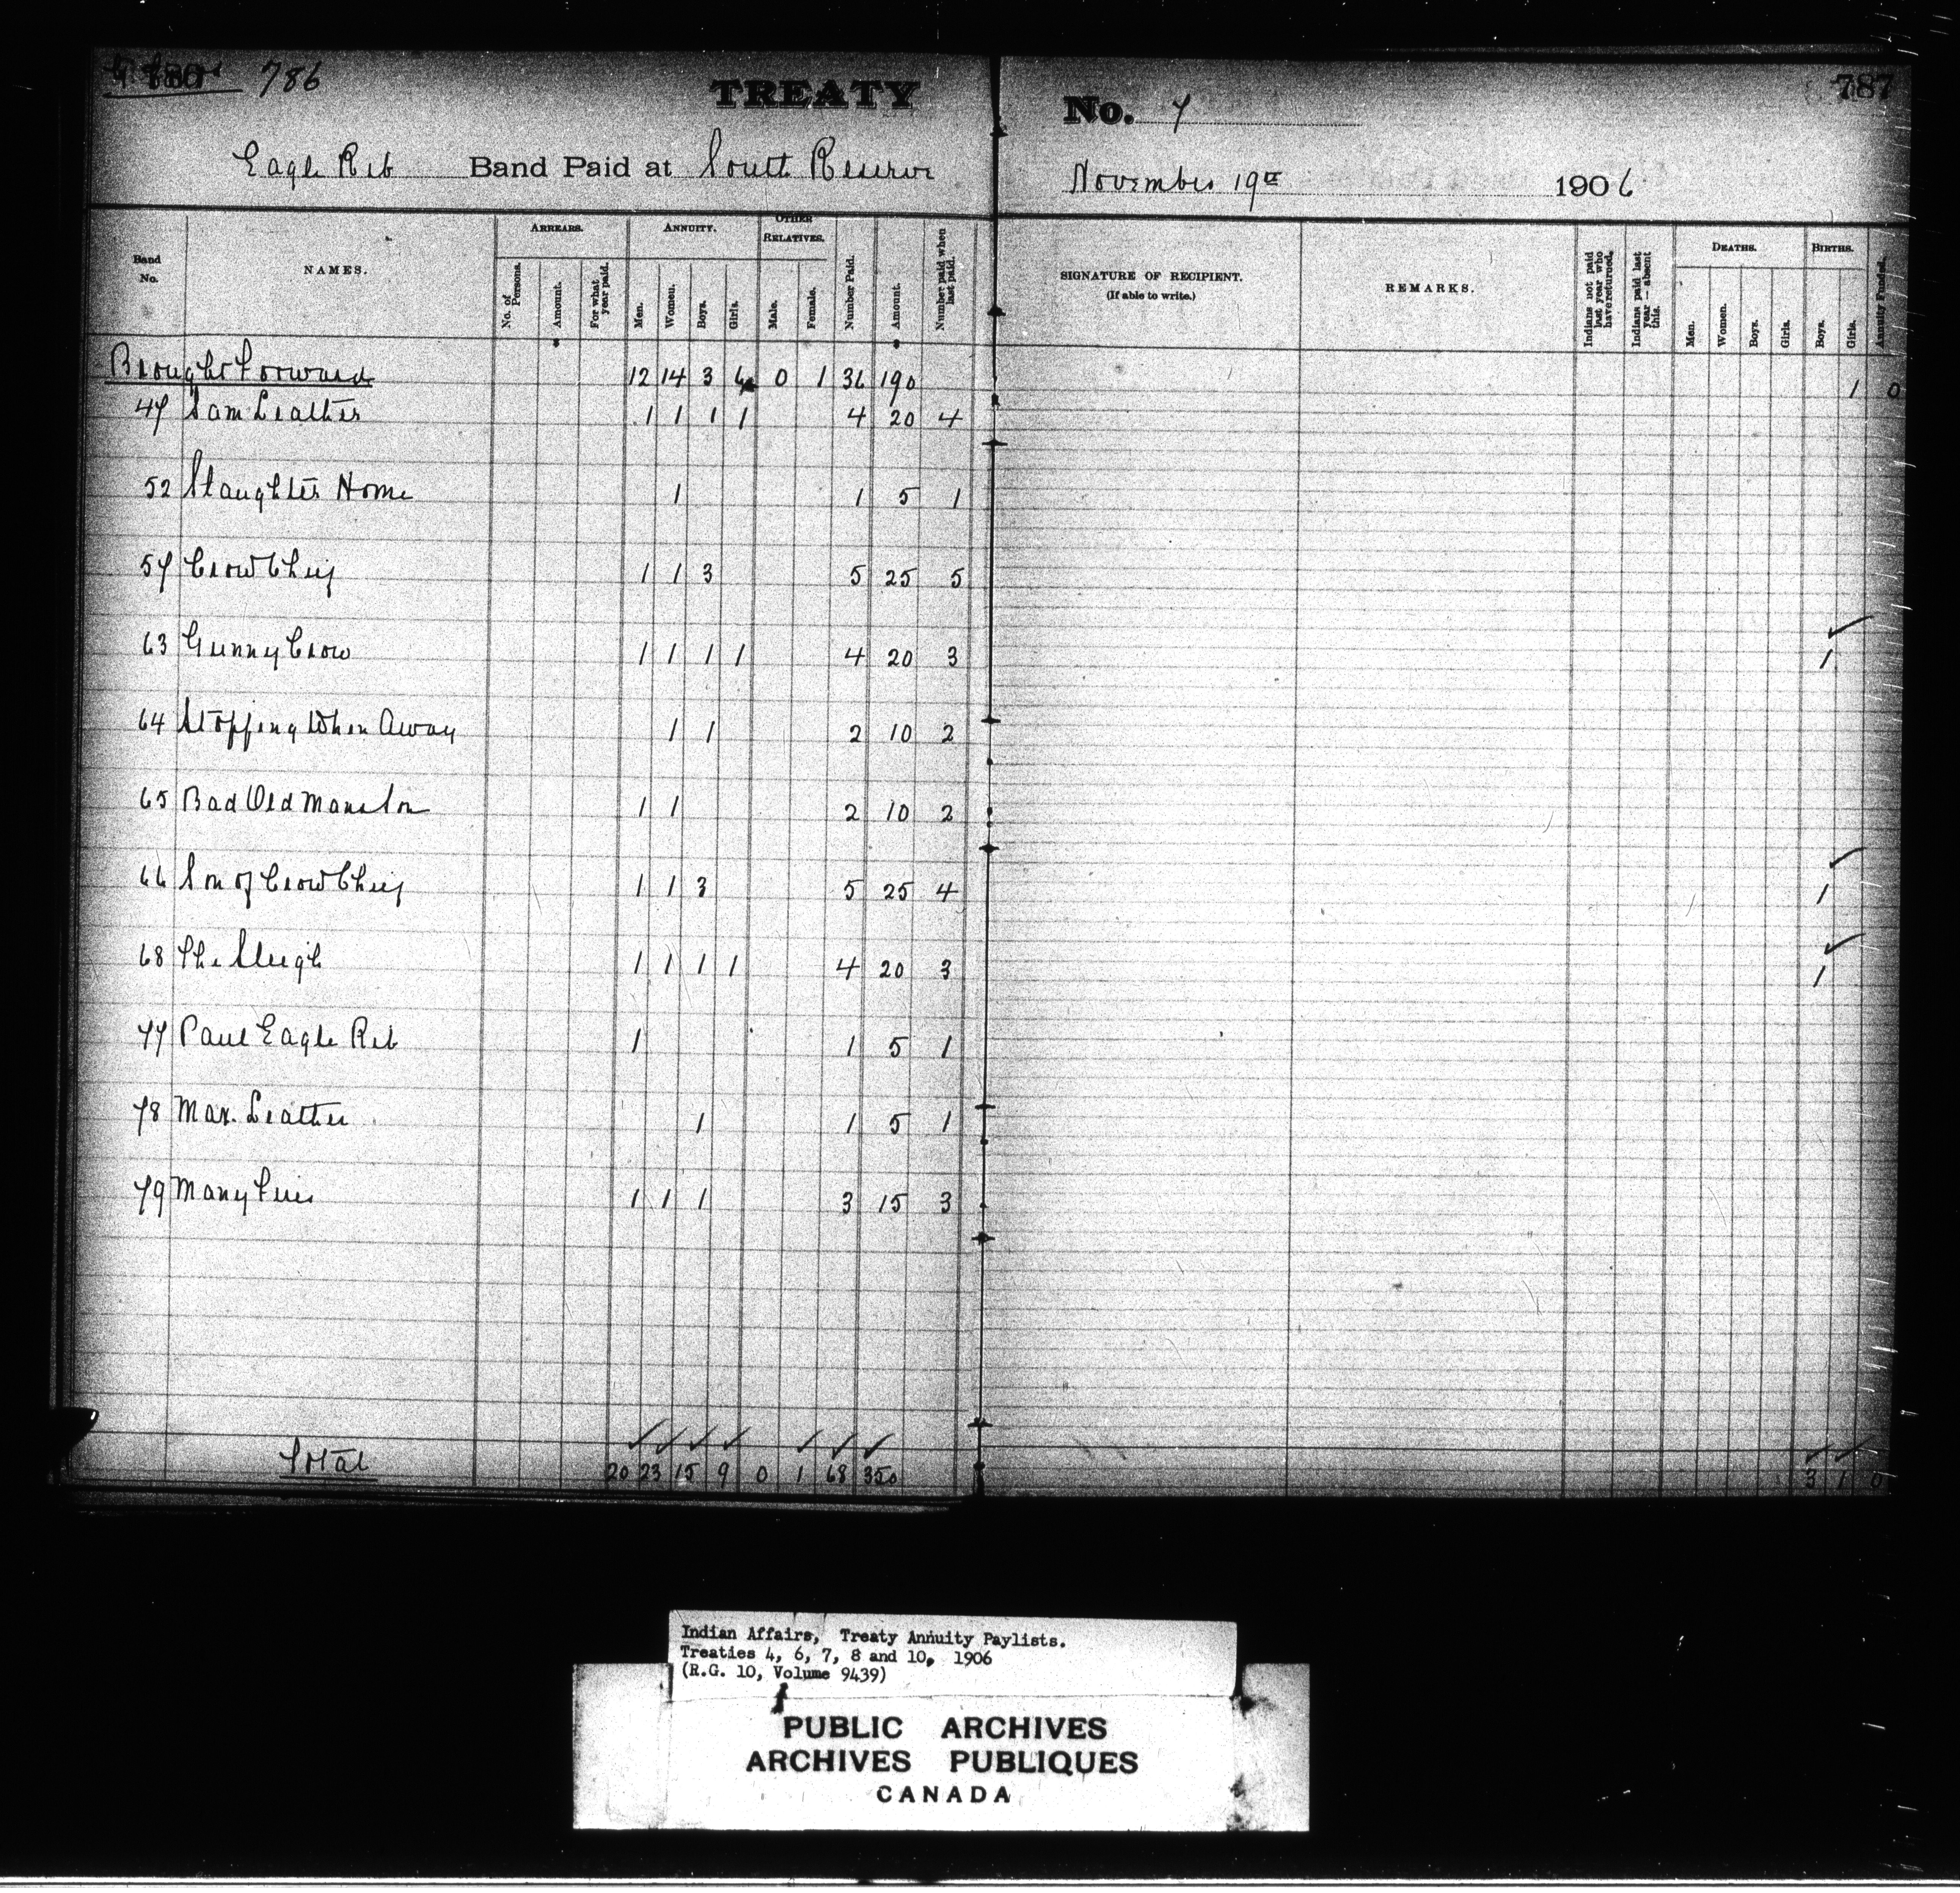 786
787
TREATY No. 7
Eagle Rib Band Paid at South Reserve November 19th 1906
Band No.
NAMES.
ARREARS.
No. of Persons.
Amount.
For what year paid.
ANNUITY.
Men.
Women.
Boys.
Girls.
OTHER RELATIVES.
Male.
Female.
Number Paid.
Amount.
Number paid when last paid.
SIGNATURE OF RECIPIENT.
(If able to write.)
REMARKS.
Indians not paid last year who have returned.
Indians paid last year — absent this.
DEATHS.
Men.
Women.
Boys.
Girls.
BIRTHS.
Boys.
Girls.
Annuity Funded.
Brought Forward 12 14 3 6 0 1 36 190 1 0
47 Sam Leather 1 1 1 1 4 20 4
52 Slaughter Home 1 1 5 1
57 Crow Chief 1 1 3 5 25 5
63 Gunny Crow 1 1 1 1 4 20 3 1
64 Stopping When Away 1 1 2 10 2
65 Bad Old Mans Son 1 1 2 10 2
66 Son of Crow Chief 1 1 3 5 25 4 1
68 The Sleigh 1 1 1 1 4 20 3 1
77 Paul Eagle Rib 1 1 5 1
78 Max. Leather 1 1 5 1
79 Many Fires 1 1 1 3 15 3
Total 20 23 15 9 0 1 68 350 3 1 0
Indian Affairs, Treaty Annuity Paylists.
Treaties 4, 6, 7, 8 and 10, 1906
(R.G. 10, Volume 9439)
PUBLIC ARCHIVES
ARCHIVES PUBLIQUES
CANADA